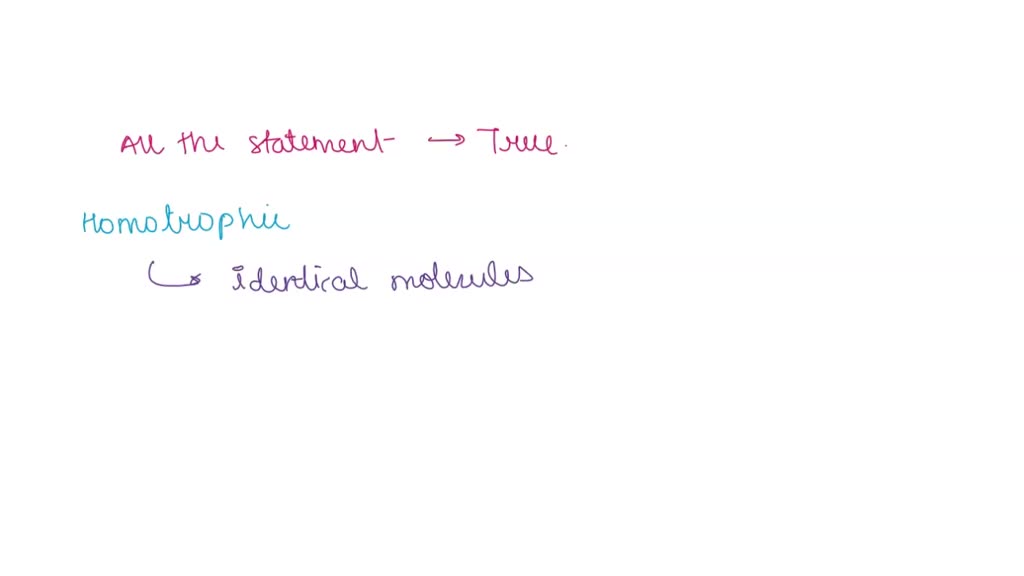 All the statement → True.
Homotrophic
↳ identical molecules